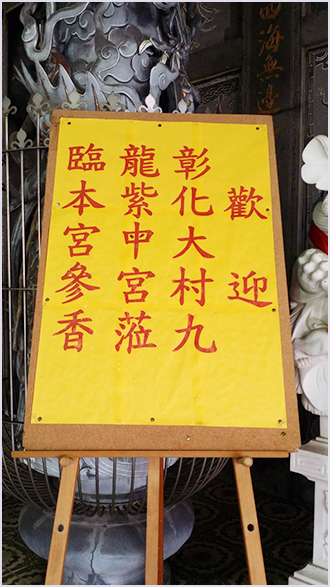 歡迎
彰化大村九
龍紫申宮蒞
臨本宮參香
四海無邊